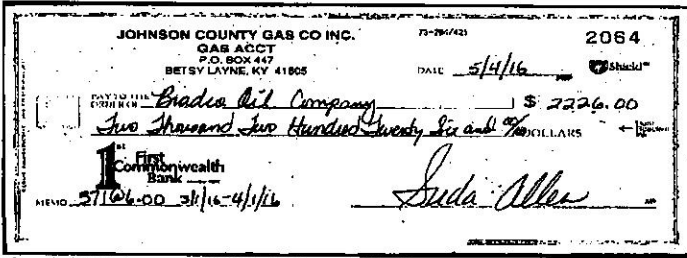 JOHNSON COUNTY GAS CO INC. 73-294/421 2064
GAS ACCT
P.O. BOX 447
BETSY LAYNE, KY 41605 DATE 5/4/16 Shield™
PAY TO THE ORDER OF Bradco Oil Company $ 2226.00
Two Thousand Two Hundred Twenty Six and 00/00 DOLLARS
1st First
Commonwealth
Bank
MEMO 3/1/16-4/1/16 Suda Allen